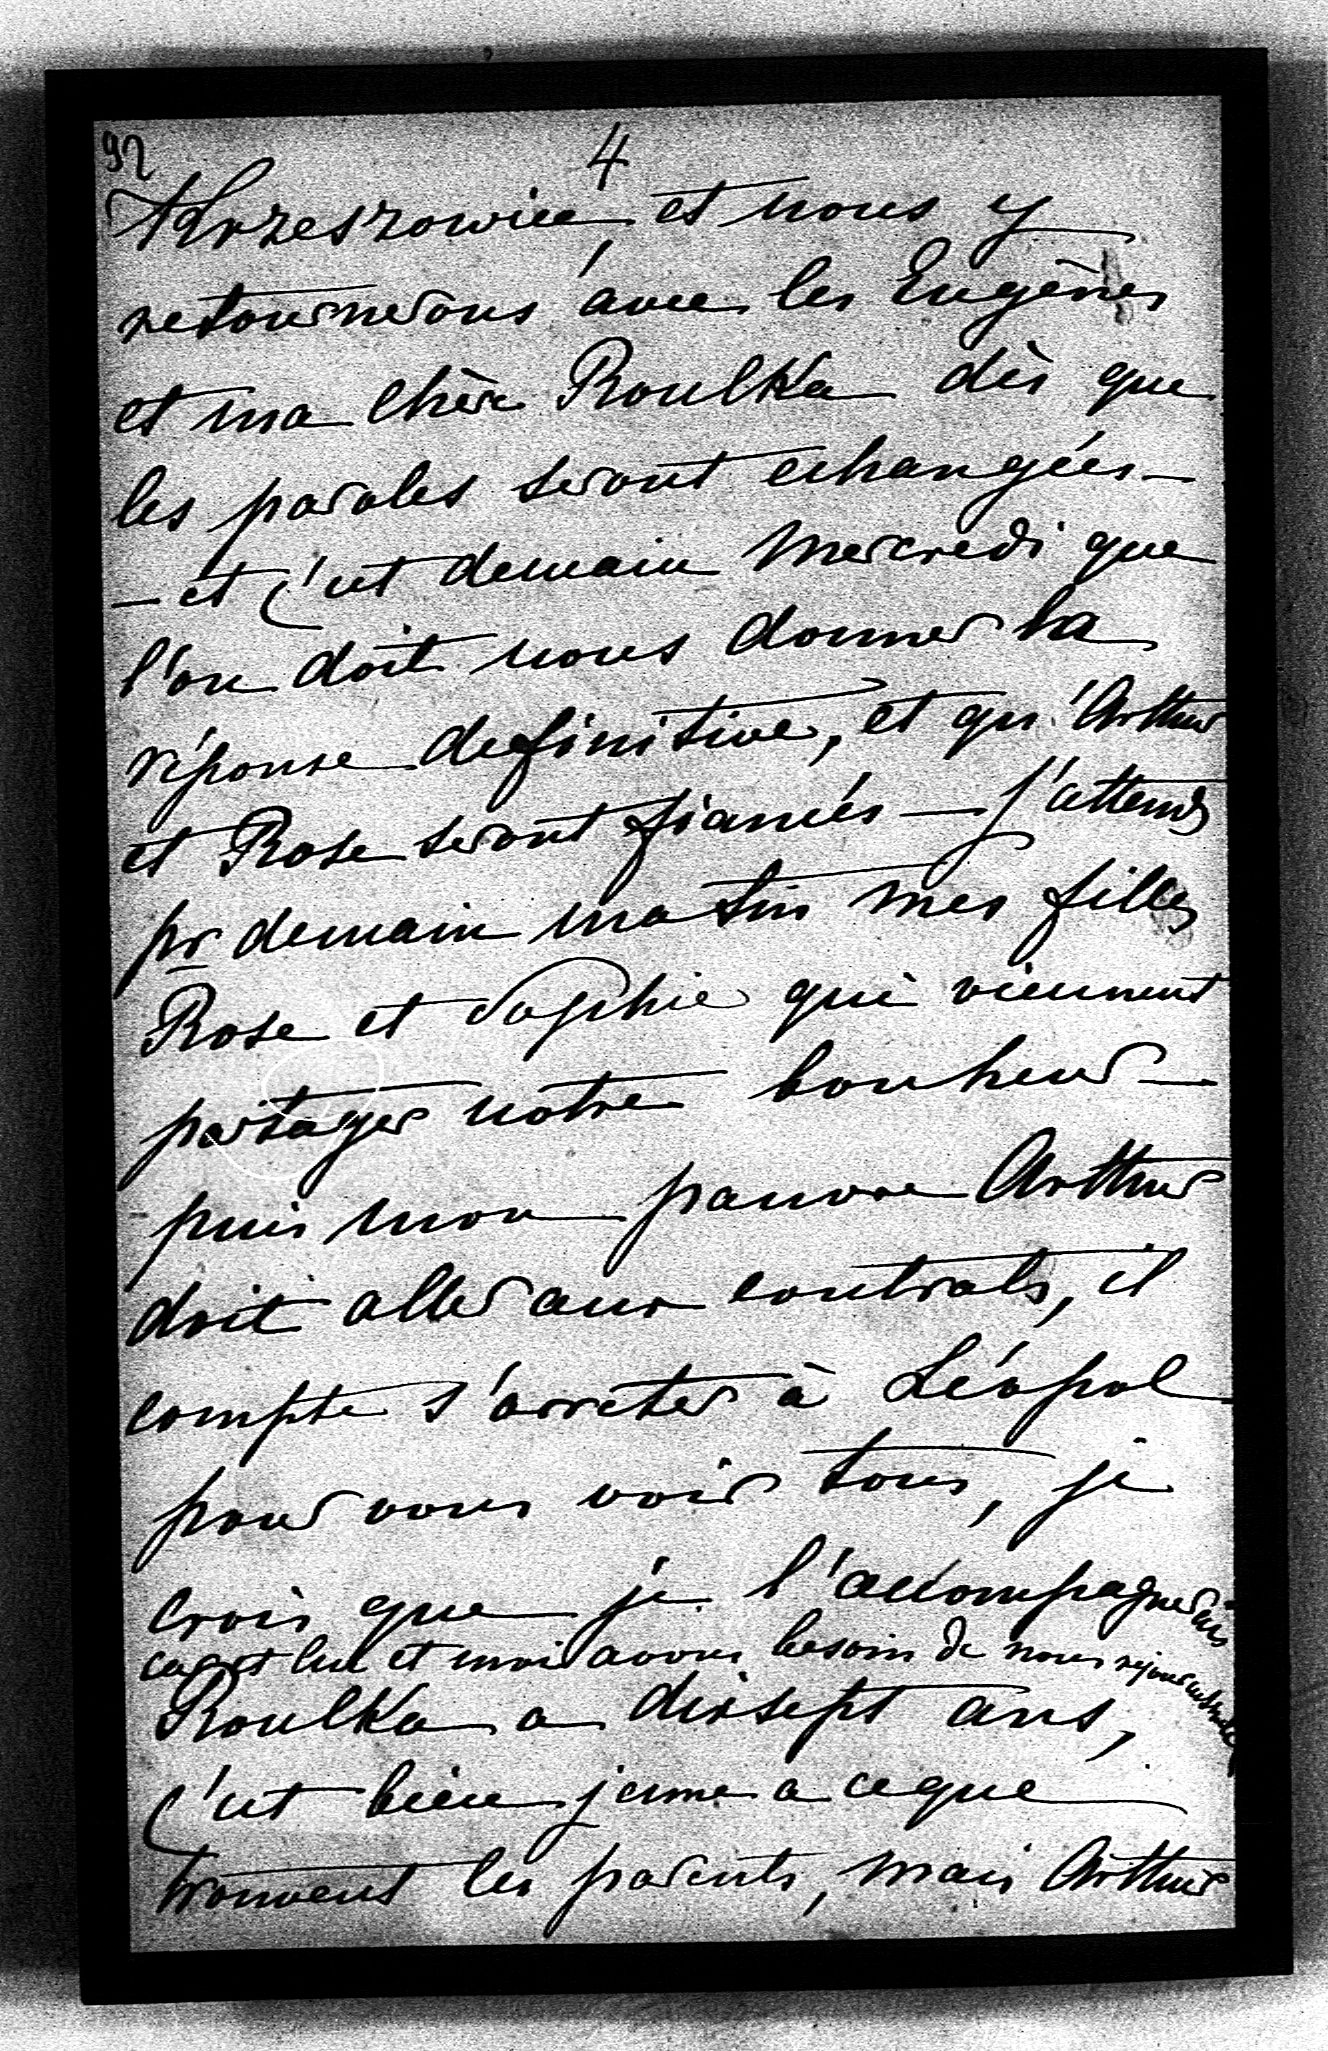 92
4
Krzeszowice et nous y
retournerons avec les Eugènes
et ma chère Roulka dès que
les paroles seront echangées —
— et c'est demain Mercredi que
l'on doit nous donner la
réponse definitive, et qu'Arthur
et Rose seront fiancés — J'attends
pr demain matin mes filles
Rose et Sophie qui viennent
partager notre bonheur —
puis mon pauvre Arthur
doit aller aux contrats, il
compte s'arreter à Léopol
pour vous voir tous, je
crois que je l'accompagnerais
car et lui et moi avons besoin de nous
Roulka a dixsept ans,
c'est bien jeune a ce que
trouvent les parents, mais Arthur